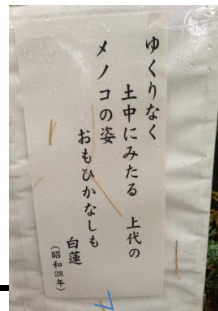 ゆくりなく
土中にみたる 上代の
メノコの姿
おもひかなしも
白蓮
(昭和28年)